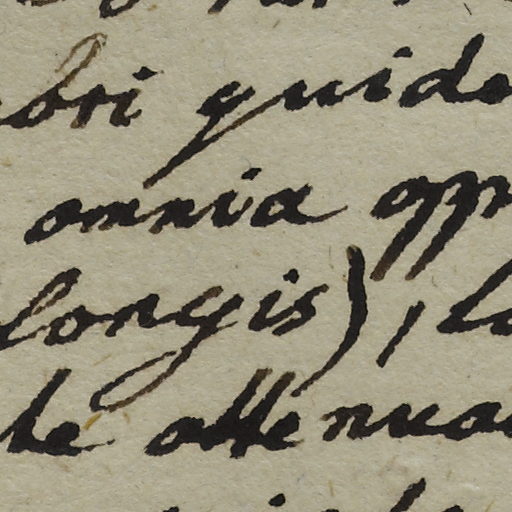 bri quide
omnia opp
longis), lo
te attenua